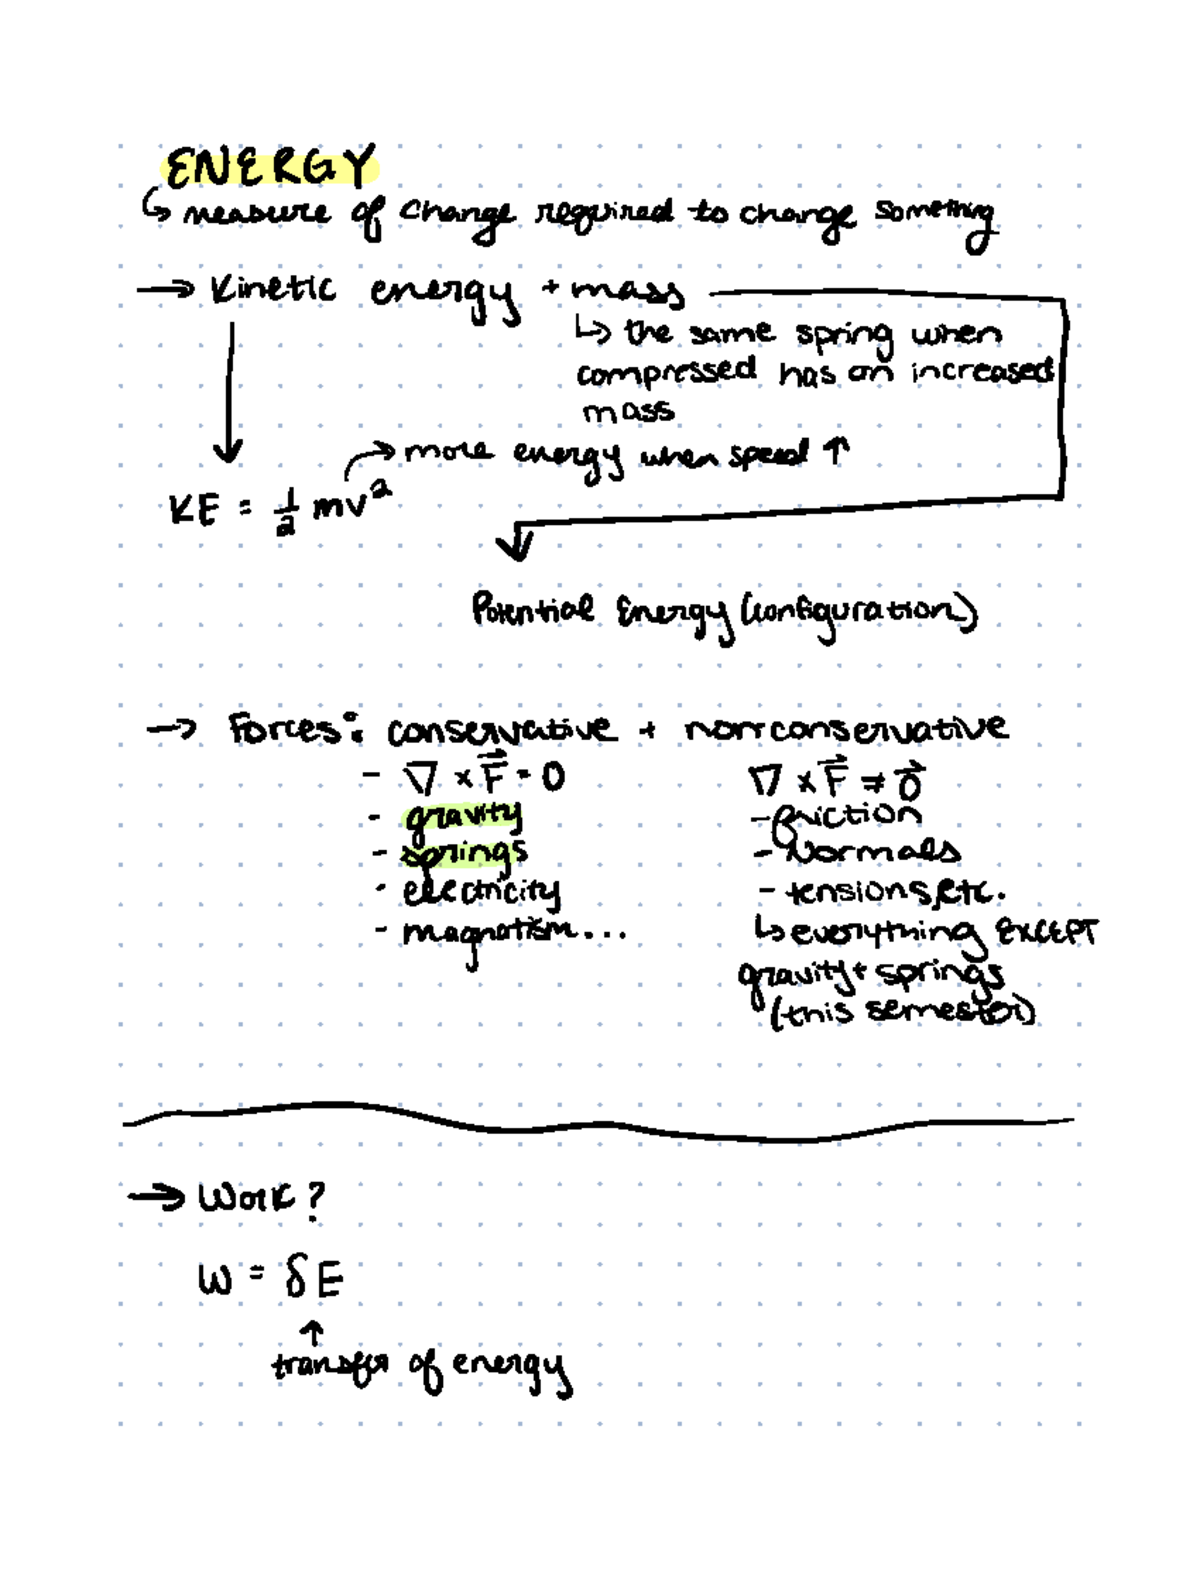 ENERGY
↳ measure of change required to change something
→ Kinetic energy + mass
↳ the same spring when
compressed has an increased
mass
→ more energy when speed ↑
KE = ½ mv²
Potential Energy (configuration)
→ Forces: conservative + nonconservative
- ∇ × F⃗ = 0
∇ × F⃗ ≠ 0⃗
- gravity
- friction
- springs
- Normals
- electricity
- tensions, etc.
- magnatism...
↳ everything EXCEPT
gravity + springs
(this semester)
→ Work?
W = δE
↑
transfer of energy